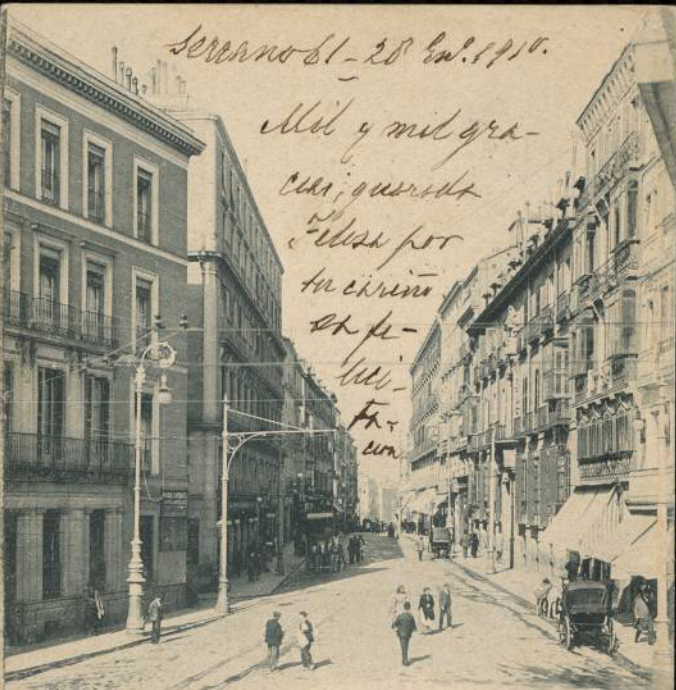 Serrano 61 - 28 En.º 1910.
Mil y mil gra-
cias, querida
Telesa por
tu cariño
sa fe-
lici-
ta-
cion